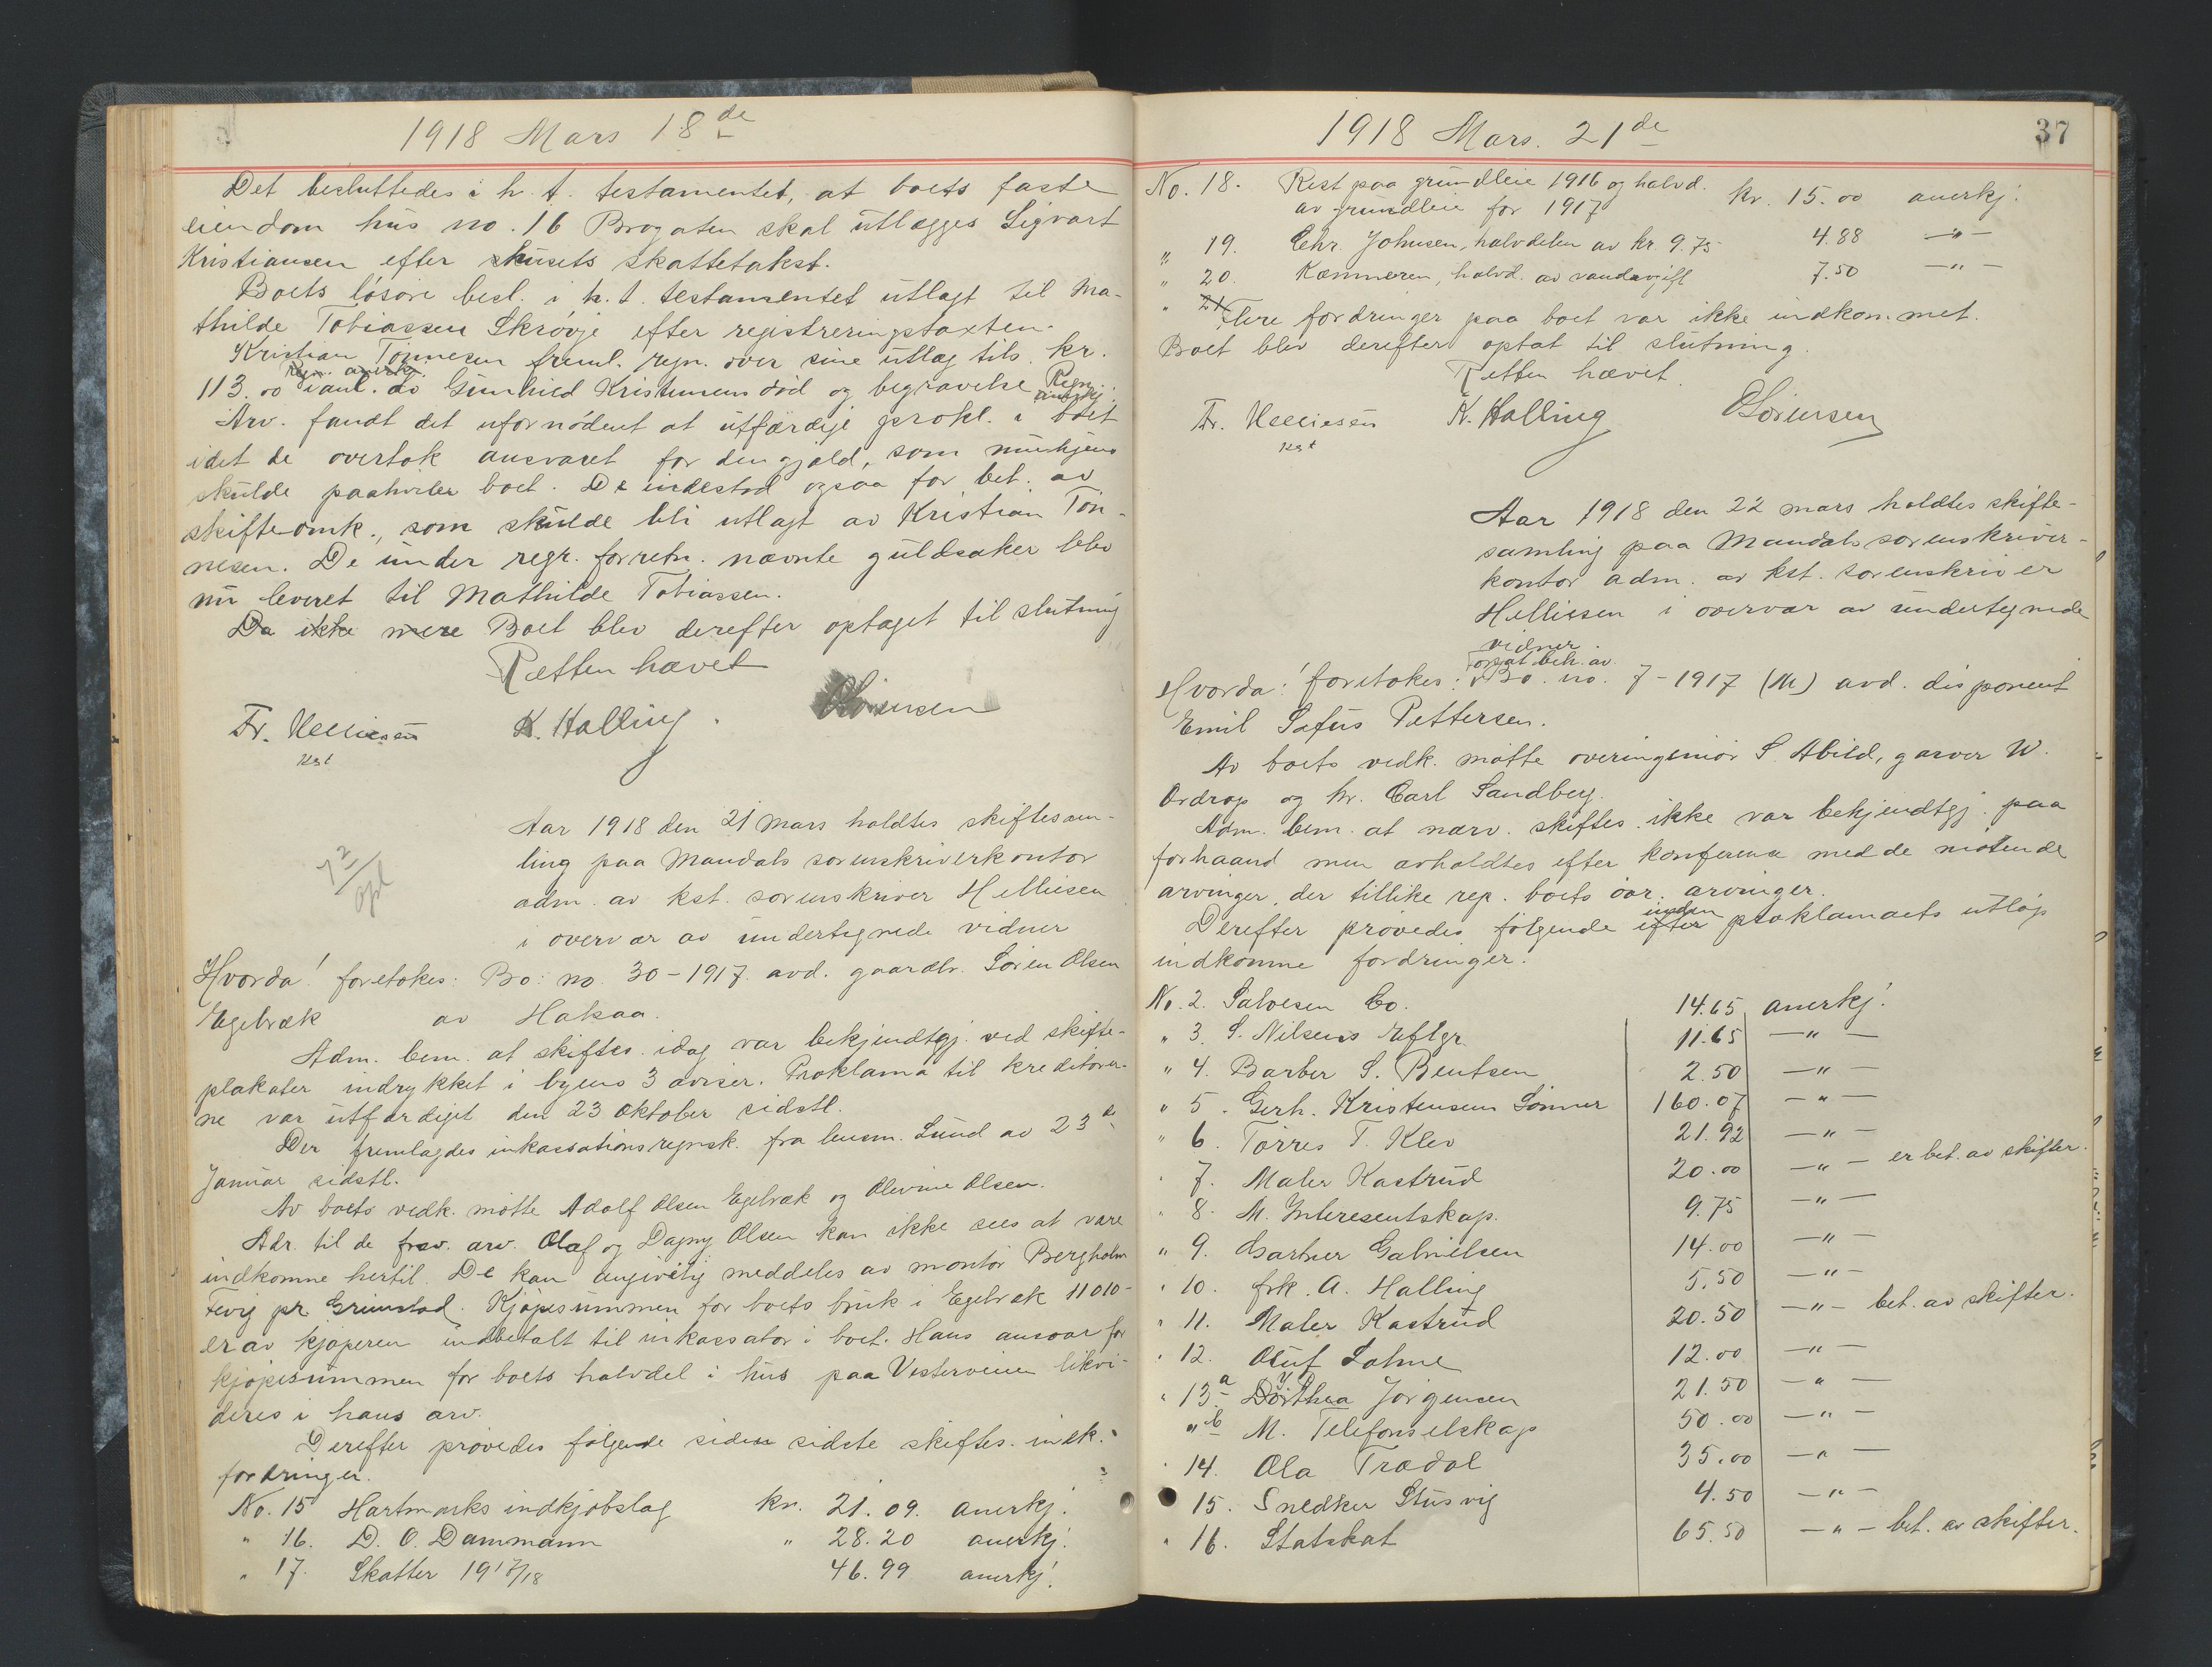 1918 Mars 18de
Det besluttedes i h. t. testamentet, at boets faste
eiendom hus no. 16 Brogaten skal utlægges Sigvart
Kristiansen efter husets skattetakst.
Boets løsøre besl. i h. t. testamentet utlagt til Ma-
thilde Tobiassen Skrøvje efter registreringstaxten.
Kristian Tønnesen freml. regn. over sine utlæg tils. kr.
113.00 i anl. av Gunhild Kristensens død og begravelse. Regn. anerkj.
Arv. fandt det ufornødent at utfærdige prokl. i boet
idet de overtok ansvaret for den gjæld, som
skulde paahvile boet. De indestod ogsaa for bet. av
skifteomk., som skulde bli utlagt av Kristian Tøn-
nesen. De under regr. forretn. nævnte guldsaker blev
nu leveret til Mathilde Tobiassen.
Da ikke mere Boet blev derefter optaget til slutning
Retten hævet
Fr. Helliesen K. Halling. OSørensen
kst
Aar 1918 den 21 Mars holdtes skiftesam-
ling paa Mandals sorenskriverkontor
adm. av kst. sorenskriver Helliesen
i overvær av undertegnede vidner
Hvorda! foretokes: Bo: no. 30-1917. avd. gaardbr. Søren Olsen
Egebræk av Halsaa.
Adm. bem. at skiftes. idag var bekjendtgj. ved skifte-
plakater indrykket i byens 3 aviser. Proklama til kreditorer-
ne var utfærdiget den 23 Oktober sidstl.
Der fremlagdes inkassationsregnsk. fra lensm. Lund av 23de
Januar sidstl.
Av boets vedk. møtte Adolf Olsen Egebræk og Olevine Olsen.
Adr. til de frav. arv. Olaf og Dagny Olsen kan ikke sees at være
indkomne hertil. De kan angivelig meddeles av montør Bergholm
Fevig pr. Grimstad. Kjøpesummen for boets bruk i Egebræk 11010-
er av kjøperen indbetalt til inkassator i boet. Hans ansvar for
kjøpesummen for boets halvdel i hus paa Vesterveien likvi-
deres i hans arv.
Derefter prøvedes følgende siden sidste skiftes. indk.
fordringer.
No. 15 Hartmarks indkjøbslag kr. 21.09. anerkj.
" 16. D. O. Dammann " 28.20 anerkj!
" 17. Skatter 1917/18 46.99 anerkj!
1918 Mars. 21de
37
No. 18. Rest paa grundleie 1916 og halvd.
av grundleie for 1917 kr. 15.00 anerkj!
" 19. Chr. Johnsen, halvdelen av kr. 9.75 4.88 —"—
" 20. Kæmneren, halvd. av vandavgift 7.50 —"—
" 21 Flere fordringer paa boet var ikke indkommet.
Boet blev derefter optat til slutning.
Retten hævet.
Fr. Helliesen K. Halling OSørensen
kst
Aar 1918 den 22 mars holdtes skifte-
samling paa Mandals sorenskriver-
kontor adm. av kst. sorenskriver
Helliesen i overvær av undertegnede
vidner.
Hvorda! foretokes: Forsat beh. av Bo. no. 7-1917 (M) avd. disponent
Emil Sofus Pettersen.
Av boets vedk. møtte overingeniør S. Abild, garver W.
Ordrop og hr. Carl Sandberg.
Adm. bem. at nærv. skiftes. ikke var bekjendtgj. paa
forhaand men avholdtes efter konferense med de møtende
arvinger, der tillike rep. boets øvr. arvinger.
Derefter prøvedes følgende efter inden proklamaets utløp
indkomne fordringer:
No. 2. Salvesen Co. 14.65 anerkj!
" 3. S. Nilsens Eftgr. 11.65 —"—
" 4. Barber S. Bentsen 2.50 —"—
" 5. Gerh. Kristensens Sønner 160.07 —"—
" 6. Tørres T. Klev 21.92 —"—
" 7. Maler Kastrud 20.00 —"— er bet. av skifter.
" 8. M. Interesentskap. 9.75 —"—
" 9. Gartner Gabrielsen 14.00 —"—
" 10. frk. A. Halling 5.50 —"—
" 11. Maler Kastrud 20.50 —"— bet. av skifter.
" 12. Oluf Lohne 12.00 —"—
" 13a Dorthea Jørgensen 21.50 —"—
" "b M. Telefonselskap 50.00 —"—
" 14. Ola Trædal 35.00 —"—
" 15. Snedker Stusvig 4.50 —"—
" 16. Statskat 65.50 —"— bet. av skifter.